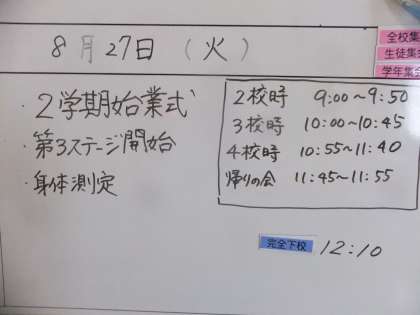 8月27日(火)
全校集
生徒集
学年集会
・2学期始業式
・第3ステージ開始
・身体測定
2校時 9:00~9:50
3校時 10:00~10:45
4校時 10:55~11:40
帰りの会 11:45~11:55
完全下校 12:10